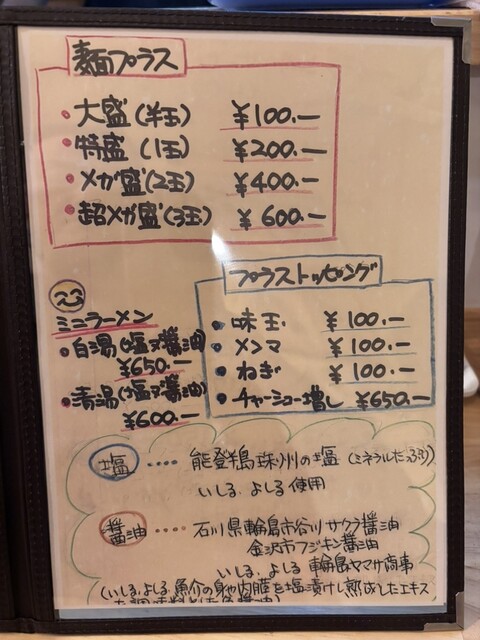 麺プラス
・大盛(半玉) ¥100.ー
・特盛(1玉) ¥200.ー
・メガ盛(2玉) ¥400.ー
・超メガ盛(3玉) ¥600.ー
ミニラーメン
・白湯(塩or醤油)
¥650.ー
・清湯(塩or醤油)
¥600.ー
プラストッピング
・味玉 ¥100.ー
・メンマ ¥100.ー
・ねぎ ¥100.ー
・チャーシュー増し ¥650.ー
塩 ‥‥ 能登半島 珠洲の塩 (ミネラルたっぷり)
いしる、よしる使用
醤油 ‥‥ 石川県輪島市谷川 サクラ醤油
金沢市フジキン醤油
いしる、よしる 輪島ヤマサ商事
(いしる、よしる 魚介の身や内臓を塩漬けし熟成したエキス